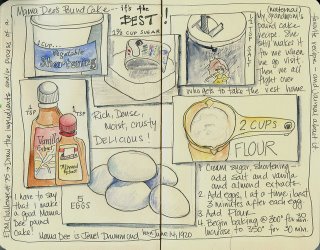 Mama Dee's Pound Cake - it's the
BEST!
1 CUP...
Vegetable
Shortening
1 2/3 CUP SUGAR
1 TSP
SALT
(maternal)
My grandmom's
pound cake
recipe. She
still makes it
for me when
we go visit.
Then we all
fight over
who gets to take the rest home.
1 TSP
1 TSP
Vanilla
Extract
Almond
Extract
Rich, Dense,
Moist, crusty
DELICIOUS!
5
EGGS
2 CUPS
FLOUR
I have to say
that I make
a good Mama
Dee pound
Cake
1. Cream sugar, shortening
add salt and vanilla
and almond extract.
2. Add eggs, 1 at a time, beat
3 minutes after each egg
3. Add Flour
4. Begin baking @ 300° for 30 min
increase to 350° for 30 min.
Mama Dee is Jewel Drummond born June 14, 1920
EDM Challenge # 95 - Draw the ingredients and/or process of a
favorite recipe - and journal about it